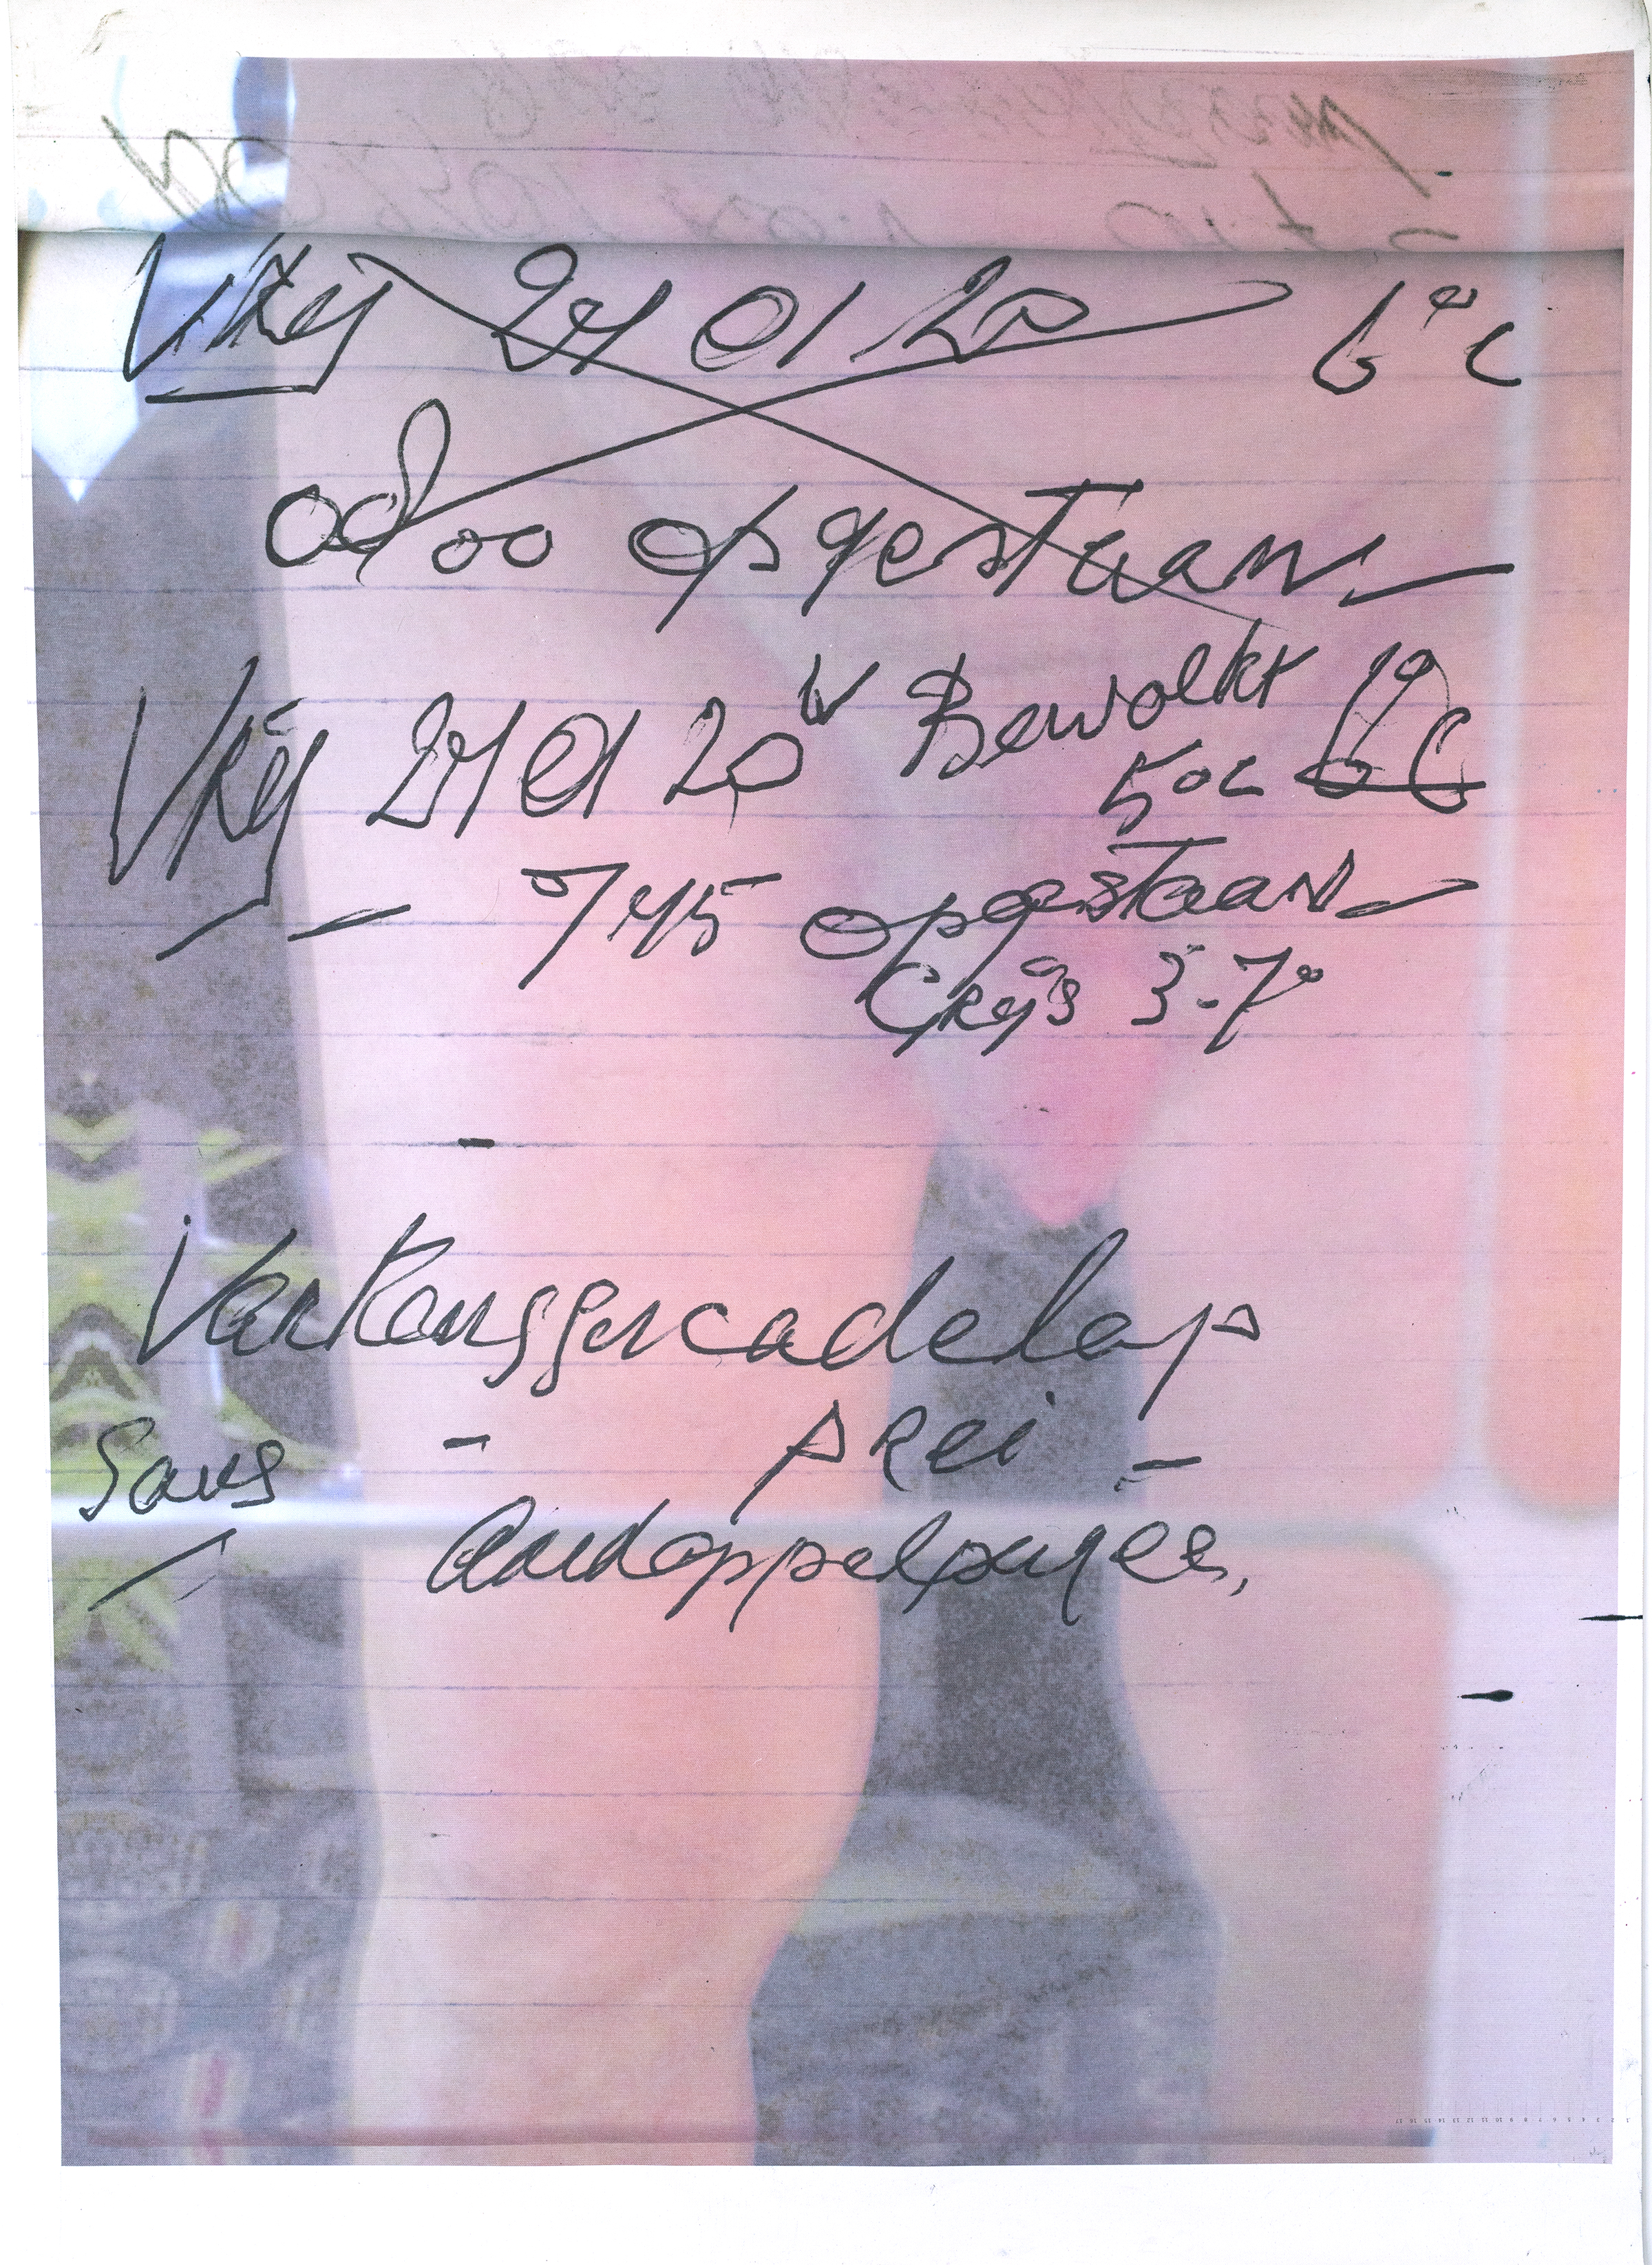 Vrij 24 01 20 6°C
0800 opgestaan
Vrij 24 01 20 Bewolkt
5°C
745 opgestaan
Grijs 3-7°
Varkensgercadelap
Saus - prei -
Aardappelpuree,